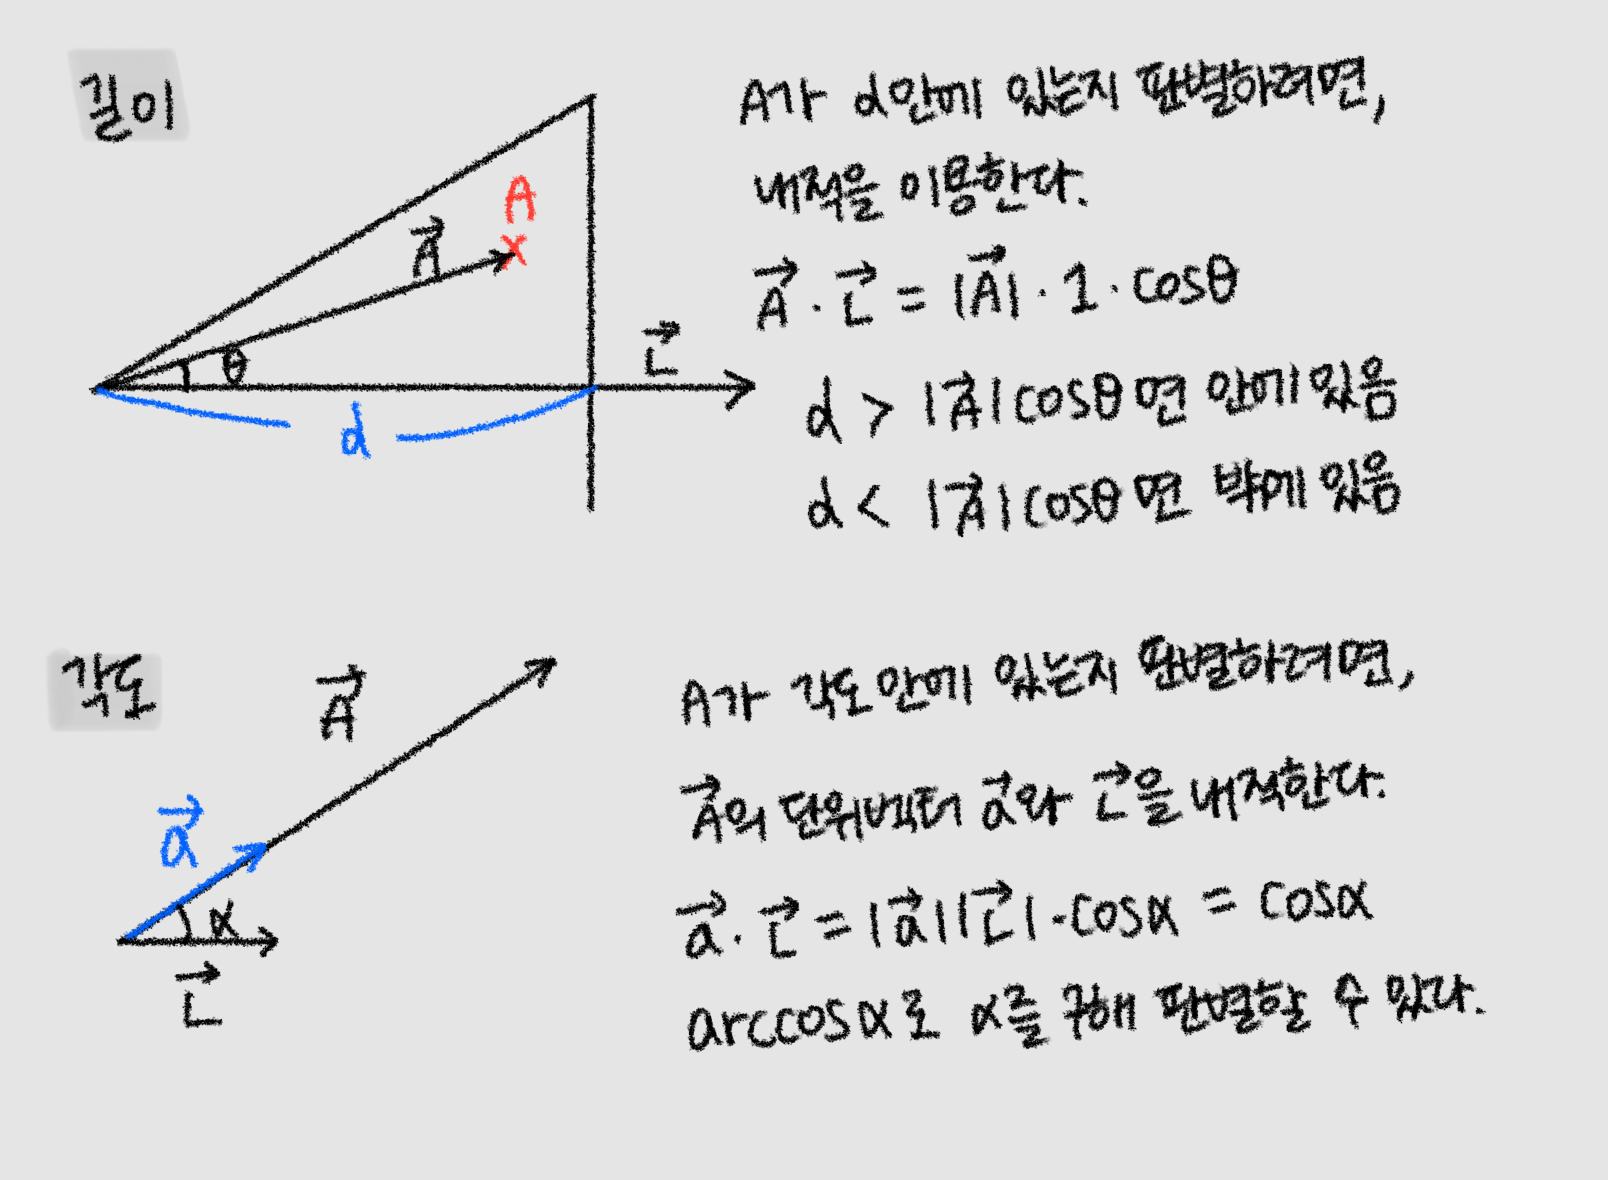 길이
A
A⃗
θ
L⃗
d
A가 d안에 있는지 판별하려면,
내적을 이용한다.
A⃗ · L⃗ = |A⃗| · 1 · cosθ
d > |A⃗| cosθ 면 안에 있음
d < |A⃗| cosθ 면 밖에 있음
각도
A⃗
a⃗
α
L⃗
A가 각도 안에 있는지 판별하려면,
A⃗의 단위벡터 a⃗와 L⃗을 내적한다.
a⃗ · L⃗ = |a⃗| |L⃗| · cosα = cosα
arccosα로 α를 구해 판별할 수 있다.